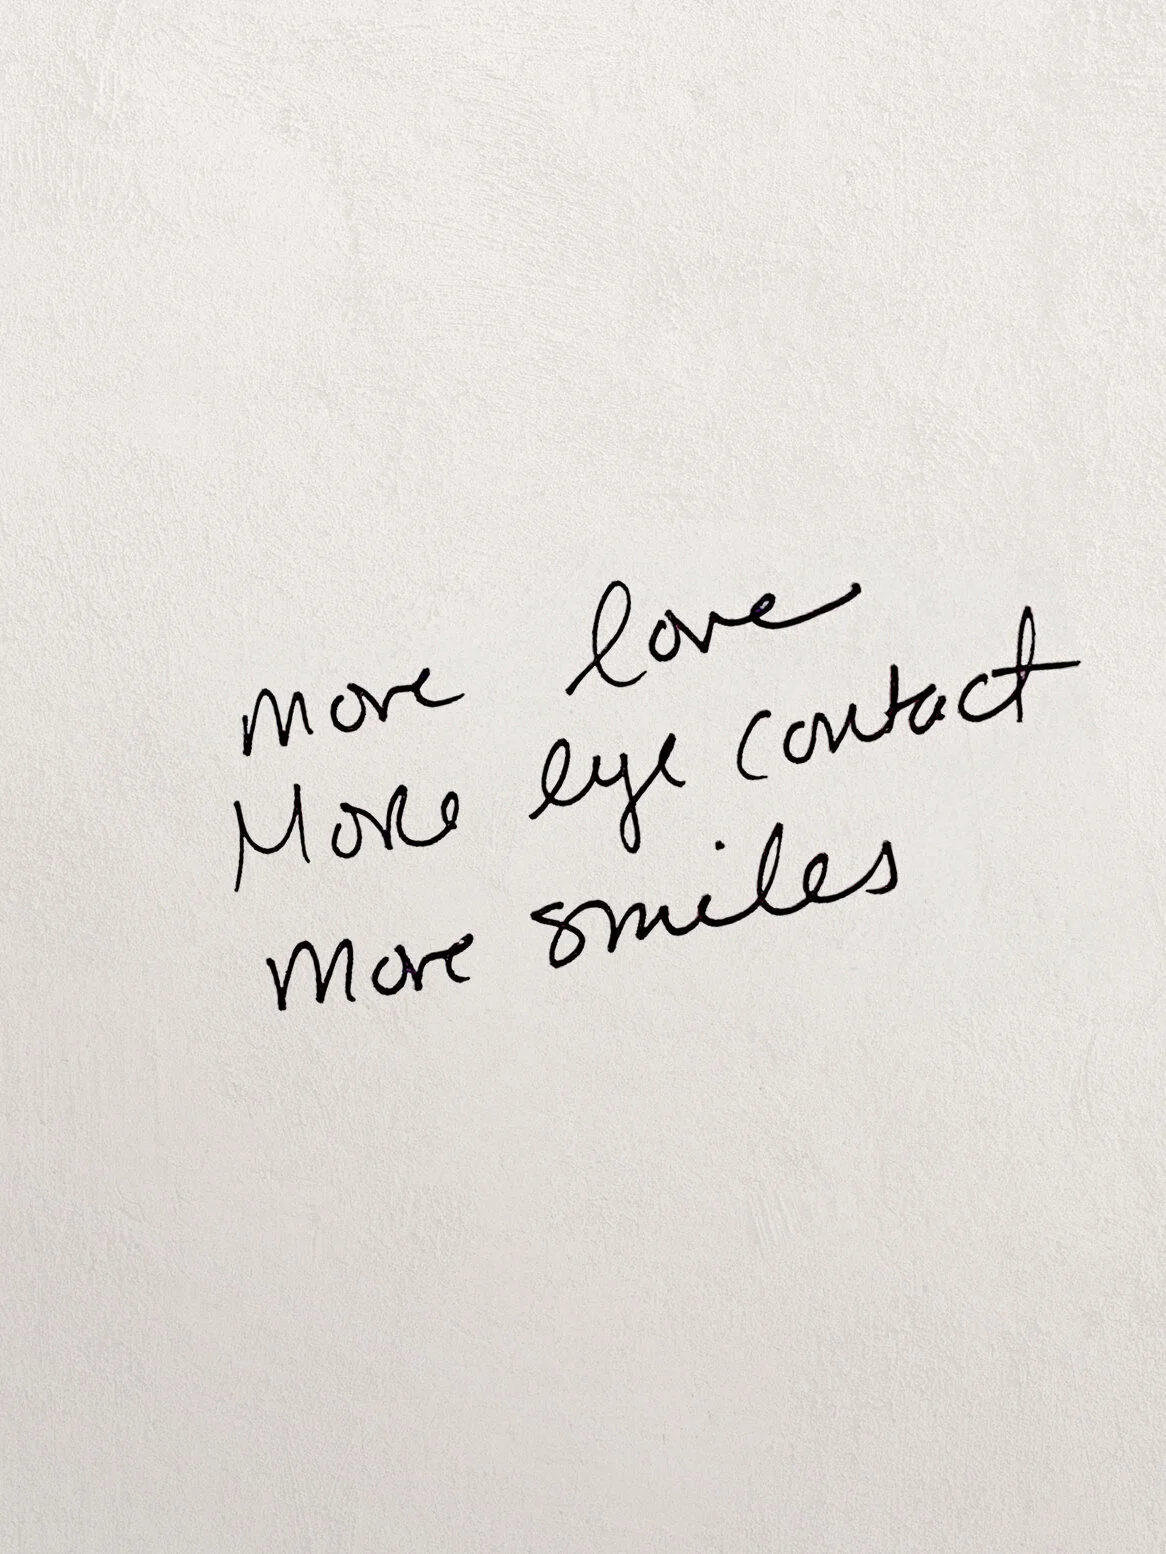 more love
More eye contact
more smiles